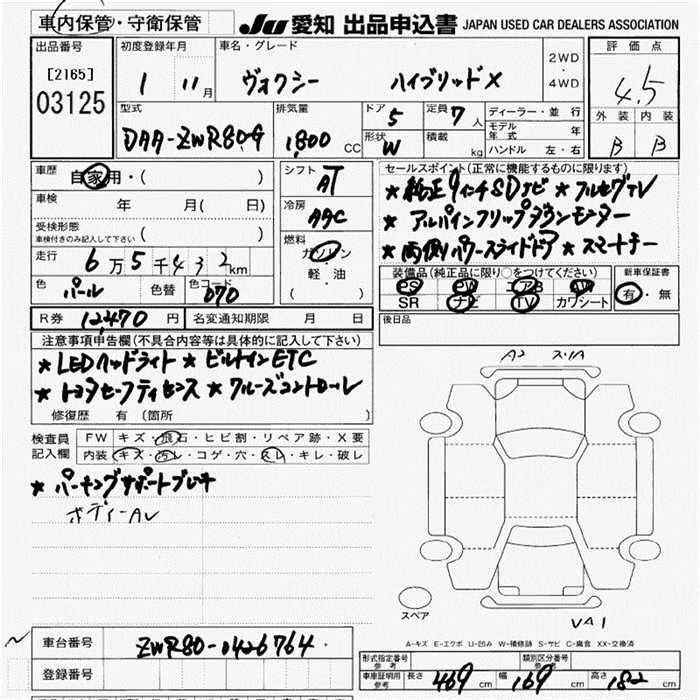 車内保管・守衛保管 JU 愛知 出品申込書 JAPAN USED CAR DEALERS ASSOCIATION
出品番号 初度登録年月 車名・グレード 2WD ・ 4WD 評価点
[2165] 03125 1 11月 ヴォクシー ハイブリッドX 4.5
外装 内装
B B
型式 排気量 ドア 5 定員 7人 ディーラー・並行
モデル年式 年
DAA-ZWR80G 1,800 CC 形状 W 積載 kg ハンドル 左・右
車歴 自家用・( ) シフト AT セールスポイント(正常に機能するものに限ります)
★純正9インチSDナビ ★フルセグTV
車検 年 月( 日) 冷房 AAC ★アルパインフリップダウンモニター
受検形態 ( )
車検付きのみ記入して下さい
★両側パワースライドドア ★スマートキー
走行 6万5千432km 燃料 ガソリン・軽・油 ( )
装備品(純正品に限り○をつけてください) 新車保証書
PS PW エアB AW 有・無
色 パール 色替 色コード 070 SR ナビ TV カワシート
R券 12,470円 名変通知期限 月 日 後日品
注意事項申告欄(不具合内容等は具体的に記入して下さい)
★LEDヘッドライト ★ビルトインETC
★トヨタセーフティセンス ★クルーズコントロール
修復歴 有 (箇所 )
A2
検査員記入欄 FW キズ・飛石・ヒビ割・リペア跡・X要
内装 キズ・汚レ・コゲ・穴・スレ・キレ・破レ
★パーキングサポートブレーキ
ボディーAU
スペア
UA1
A-キズ E-エクボ U-凹み W-補修跡 S-サビ C-腐食 XX-交換済
車台番号 ZWR80-0426764
形式指定番号 参考 類別区分番号 参考
登録番号 車庫証明用 参考 長さ 469cm 幅 169cm 高さ 182cm